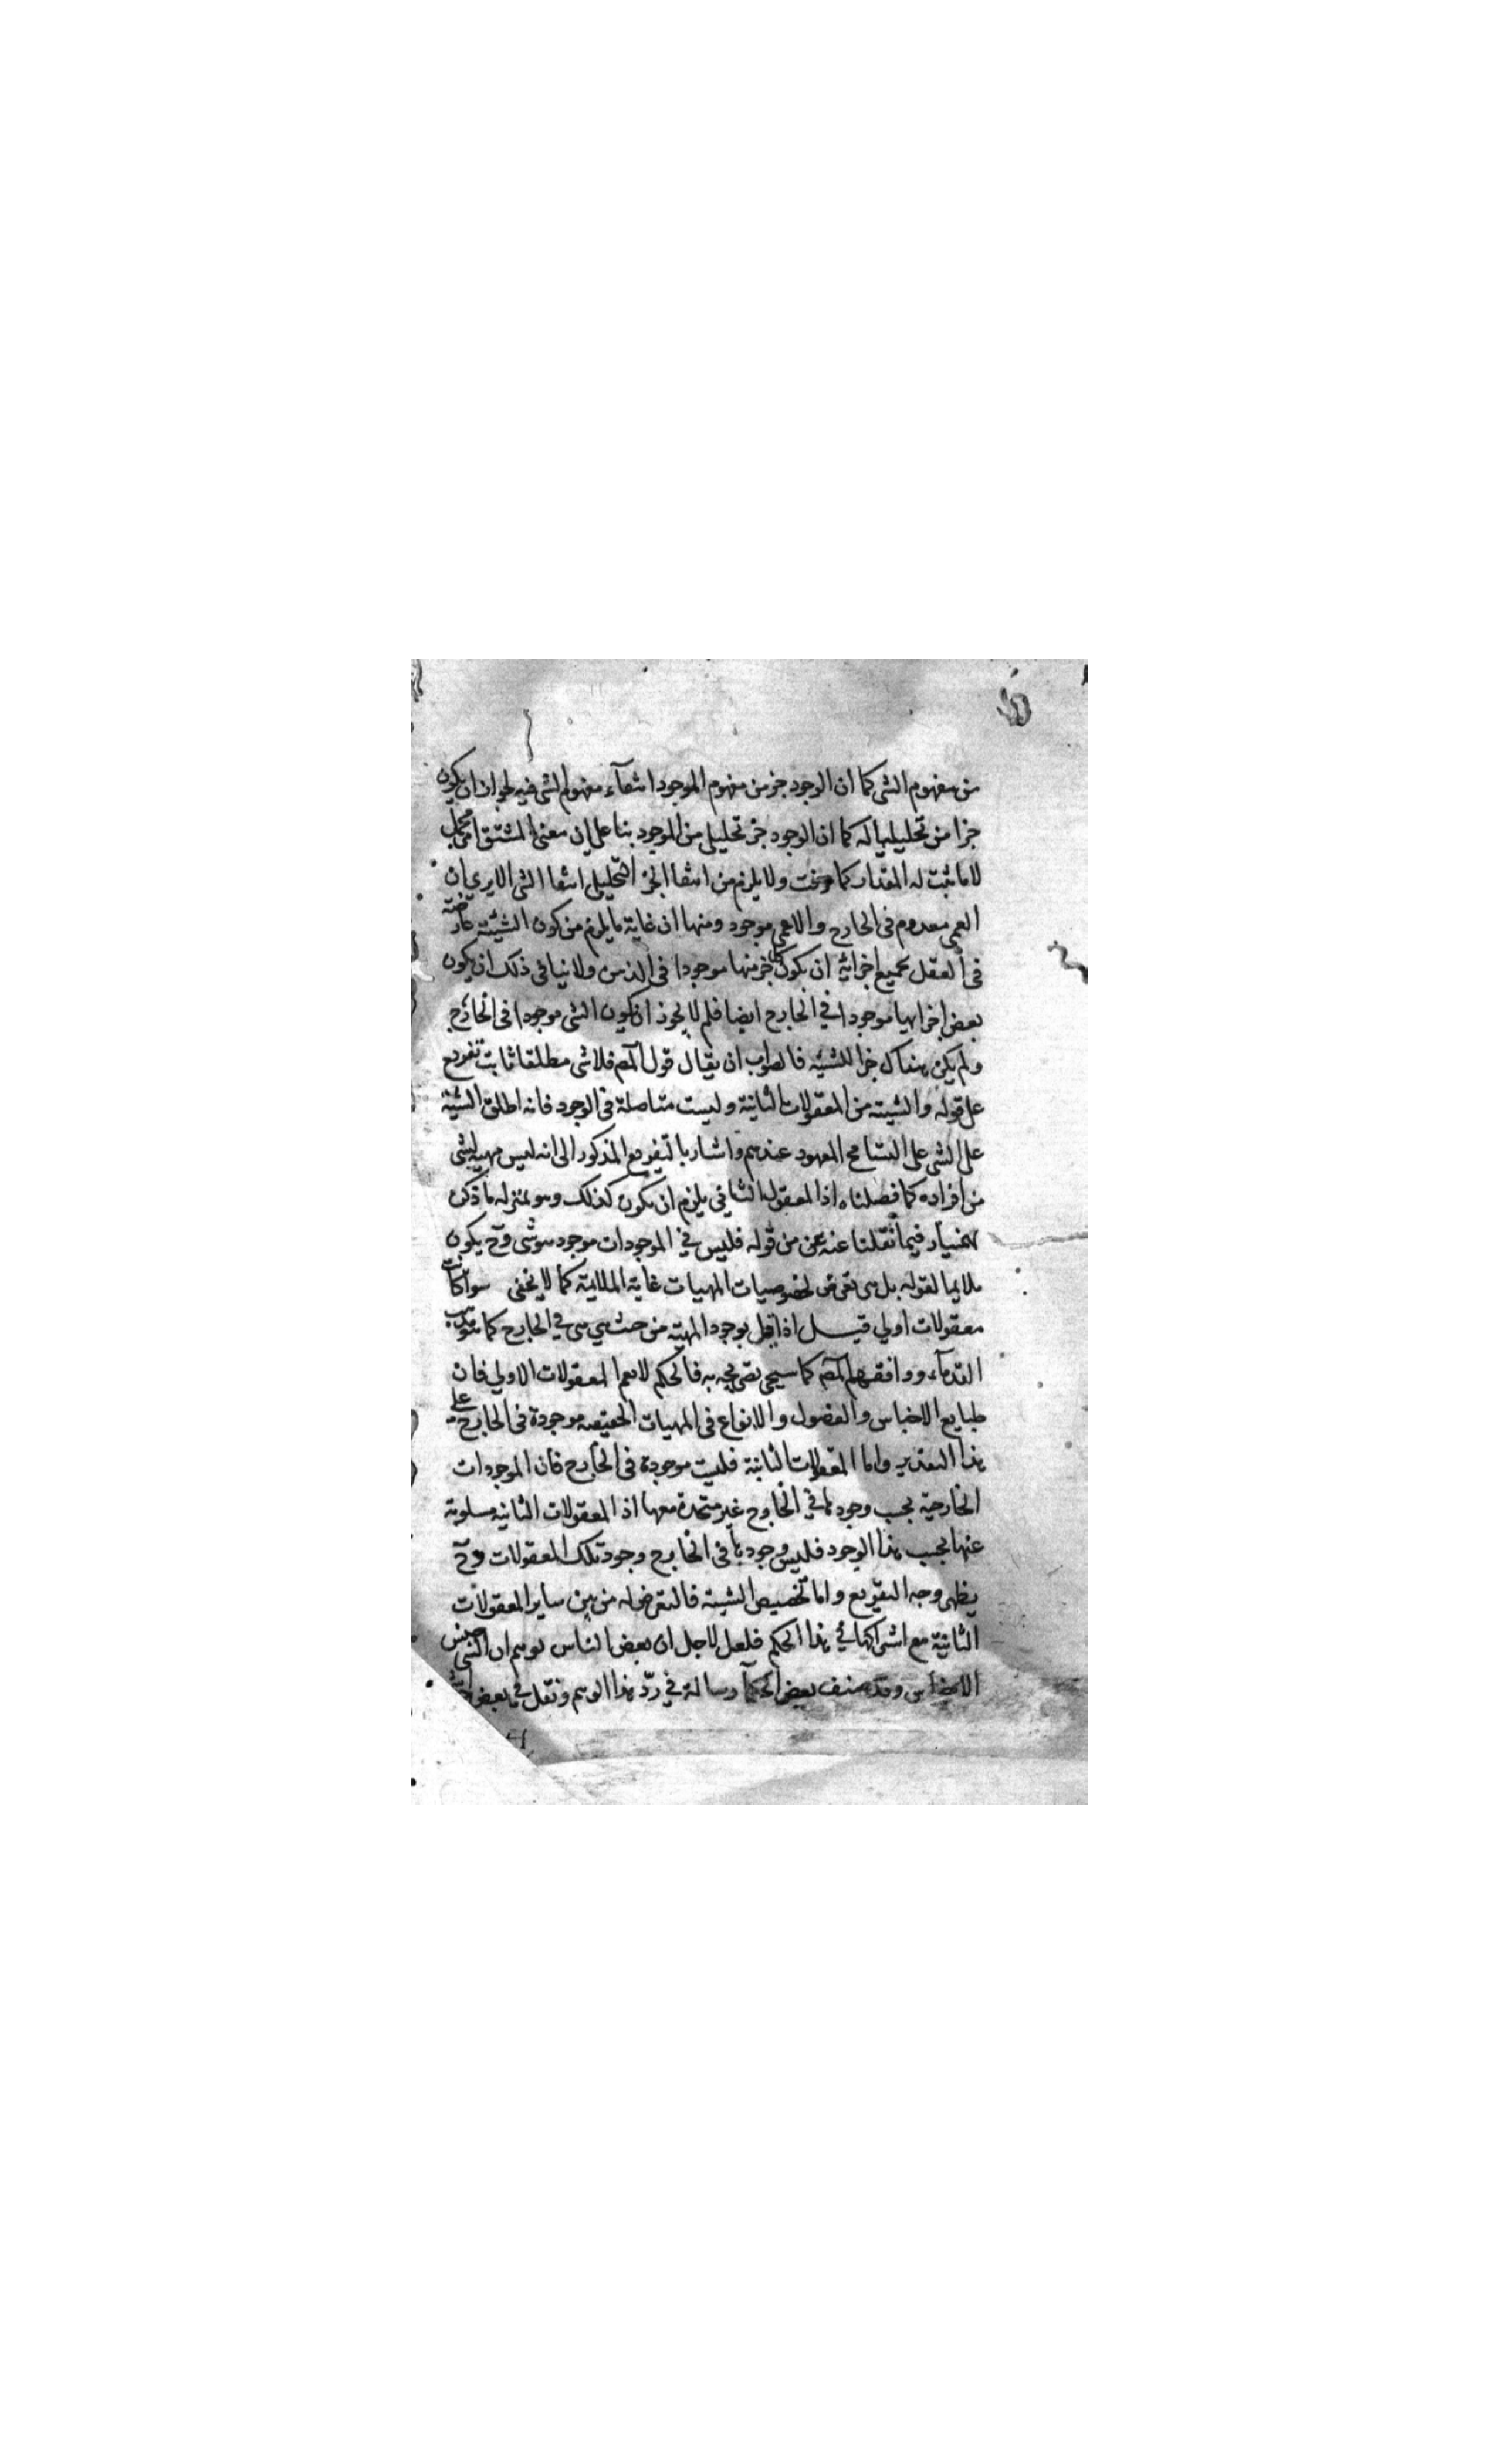 من مفهوم الشي كما ان الوجود جزء من مفهوم الموجود انتفآء مفهوم الشي فيه لجواز ان يكون
جزا من تحليليا له كما ان الوجود جزء تحليلي من الموجود بنا على ان معنى المشتق امر مجمل
لا ما ثبت له المقدار كما عرفت ولا يلزم من انتفا الجزء التحليلي انتفا الشي الا يرى ان
العمى معدوم في الخارج والاعمى موجود ومنها ان غاية ما يلزم من كون الشيئية عارضة
في العقل بجميع اجزائه ان يكون كل جزء منها موجودا في الذهن ولا ينافي ذلك ان يكون
بعض اجزائها موجودا في الخارج ايضا فلم لا يجوز ان يكون الشي موجودا في الخارج
ولم يكن هناك جزا للشيئية فالصواب ان يقال قول المصم فلا شي مطلقا ثابت تفريع
على قوله والشيئية من المعقولات الثانية وليست متاصلة في الوجود فانه اطلق الشيئية
على الشي على التسامح المعهود عندهم واشار بالتفريع المذكور الى انه ليس مهية لشي
من افراده كما فصلناه اذ المعقول الثاني يلزم ان يكون كذلك وهو بمنزله ما ذكره
بهمنيار فيما نقلنا عنه من قوله فليس في الموجودات موجود هو شي وح يكون
ملايما لقوله بل هي تعرض لخصوصيات المهيات غاية الملايمة كما لا يخفى سوا كانت
معقولات اولي قيل اذا قيل بوجود المهية من حيث هي هي في الخارج كما هو مذهب
القدمآء ووافقهم المصم كما سيجي تصريحه به فالحكم لا يعم المعقولات الاولي فان
طبايع الاجناس والفصول والانواع في المهيات الحقيقيه موجودة في الخارج على
هذا التقدير واما المعقولات الثانية فليست موجودة في الخارج فان الموجودات
الخارجية بحسب وجودها في الخارج غير متحدة معها اذ المعقولات الثانية مسلوبة
عنها بحسب هذا الوجود فليس وجودها في الخارج وجود تلك المعقولات وح
يظهر وجه التفريع واما تخصيص الشيئية فالتعرض له من بين ساير المعقولات
الثانية مع اشتراكها في هذا الحكم فلعل لاجل ان بعض الناس توهم ان الشي جنس
الاجناس وقد صنف بعض الحكمآ رسالة في ردّ هذا الوهم ونقل في بعض